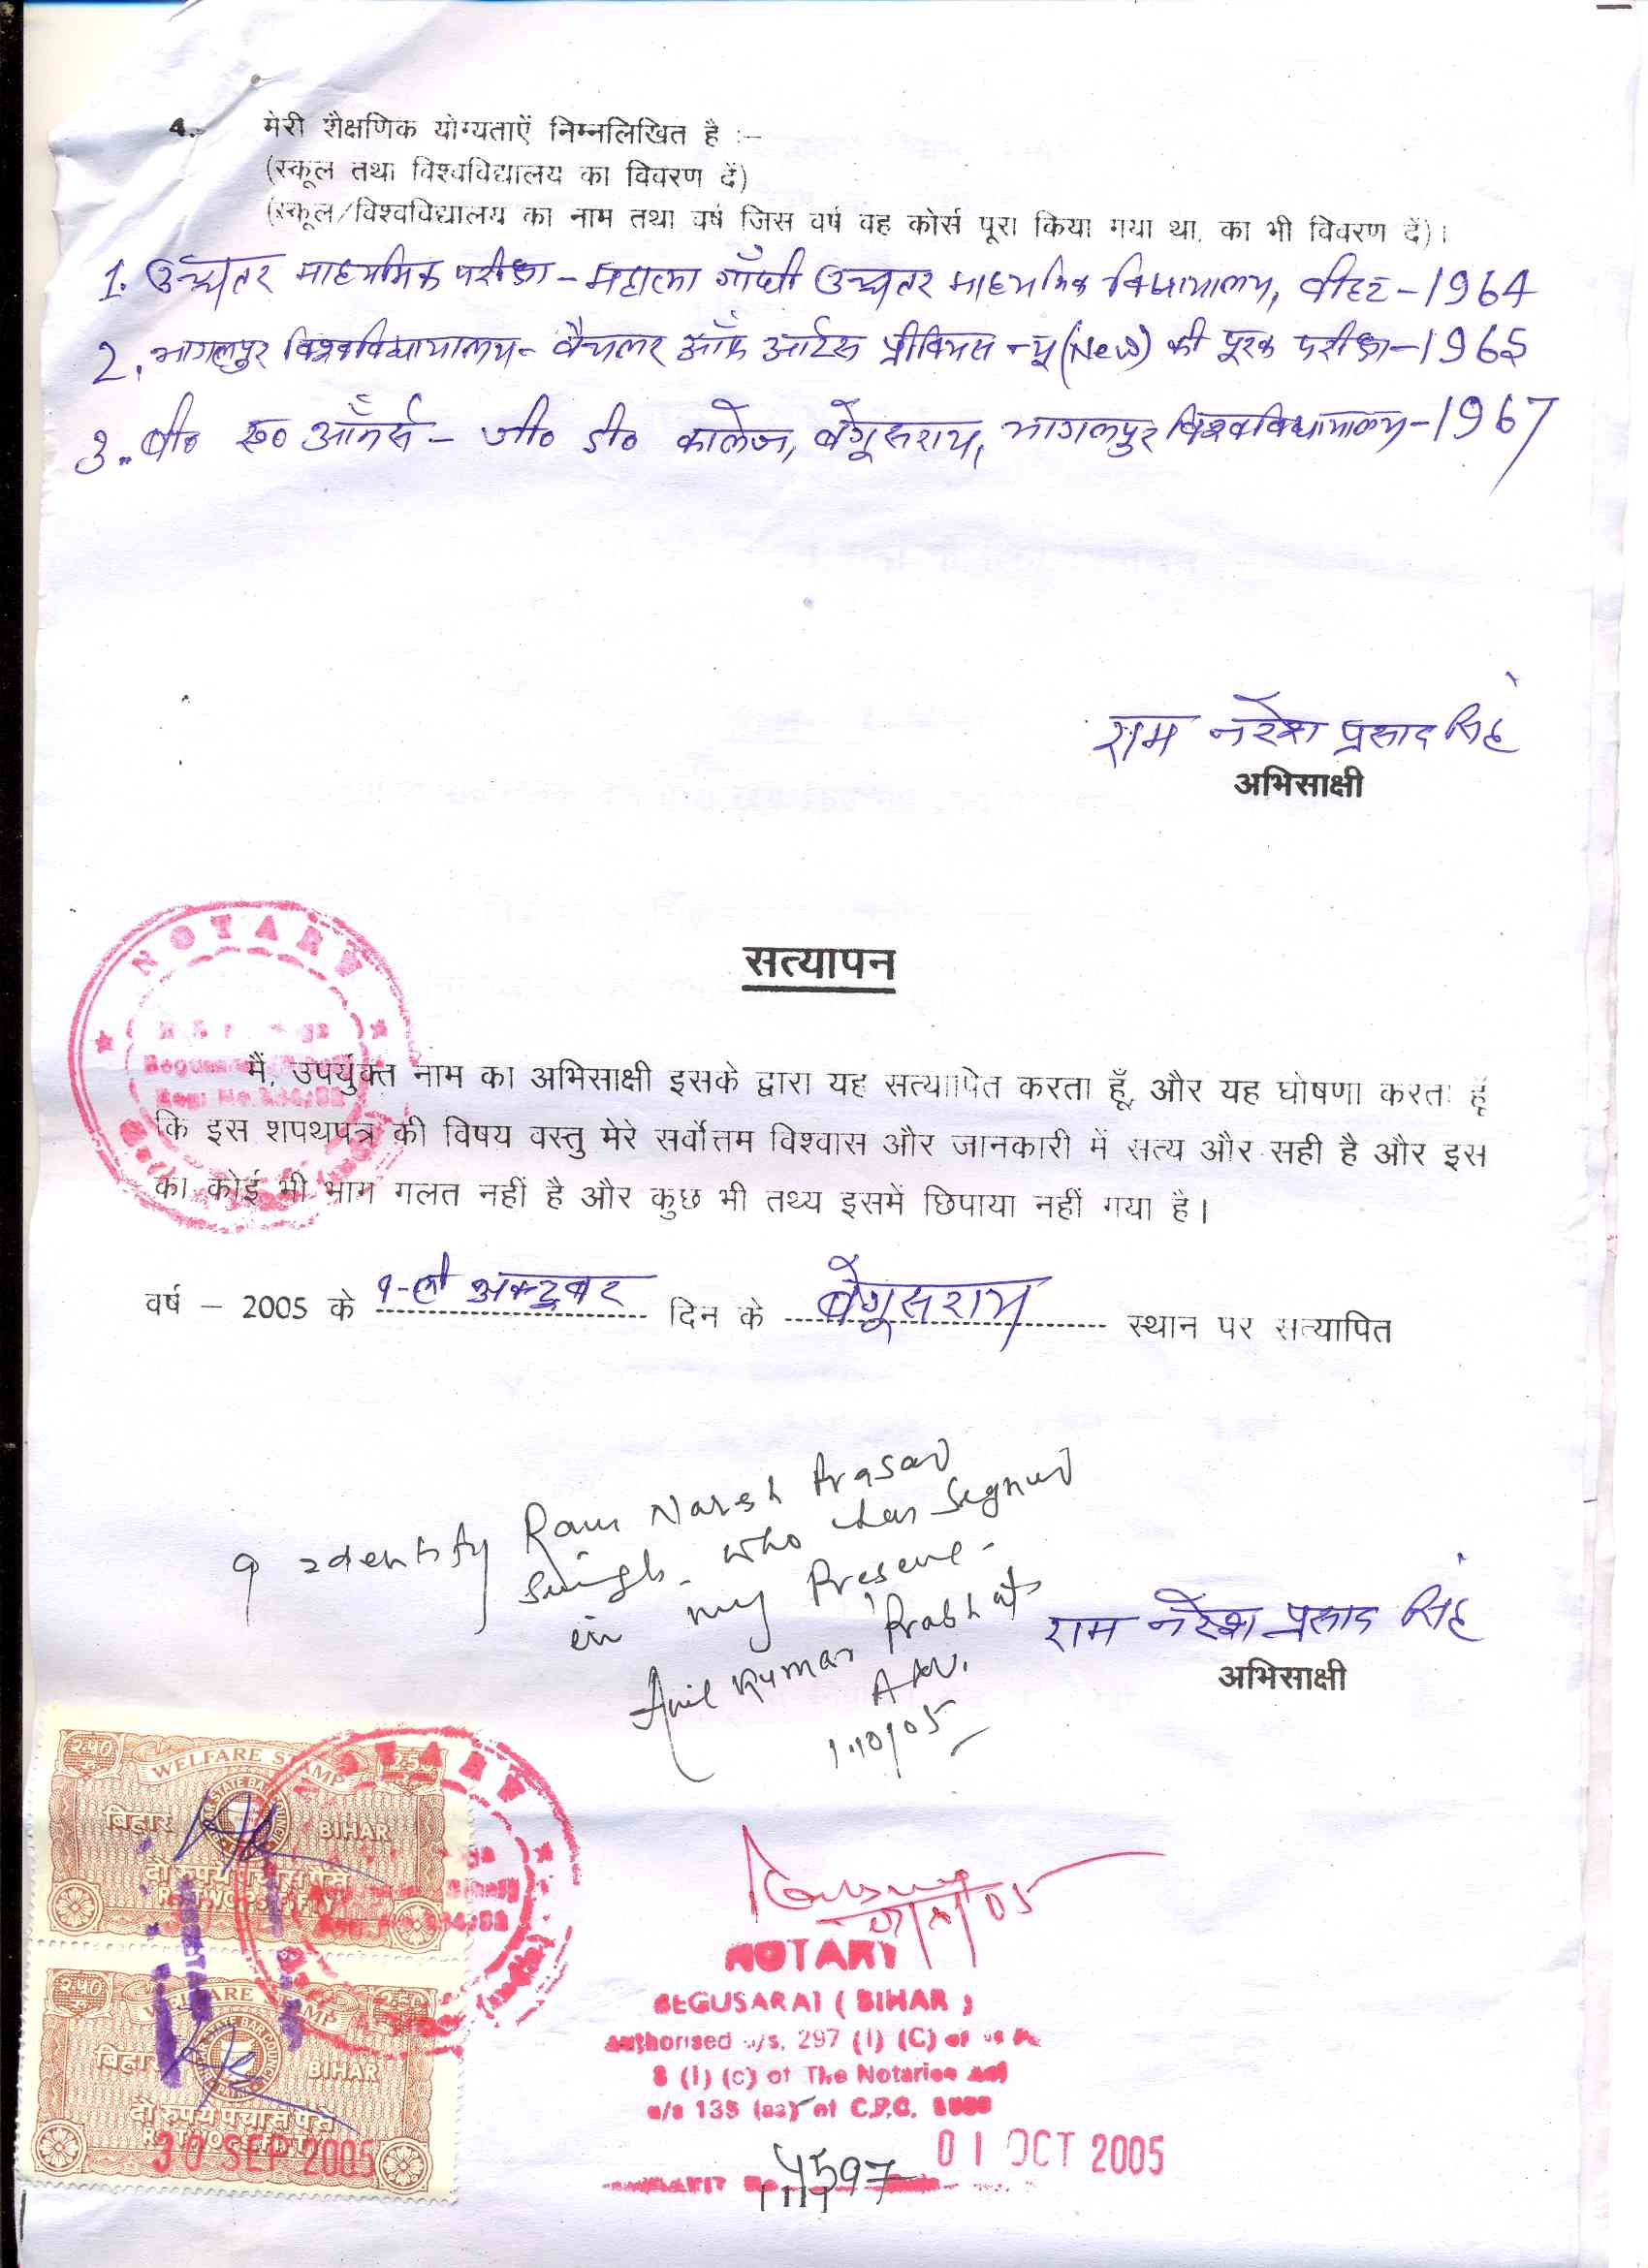 4. मेरी शैक्षणिक योग्यताऐं निम्नलिखित है :–
(स्कूल तथा विश्वविद्यालय का विवरण दें)
(स्कूल/विश्वविद्यालय का नाम तथा वर्ष जिस वर्ष वह कोर्स पूरा किया गया था, का भी विवरण दें)।
1. उच्चतर माध्यमिक परीक्षा – महात्मा गाँधी उच्चतर माध्यमिक विद्यायालय, बीहट – 1964
2. भागलपुर विश्वविद्यायालय – बैचलर ऑफ आर्टस प्रीवियस न्यू (New) की पूरक परीक्षा – 1965
3. बी० ए० ऑनर्स – जी० डी० कालेज, बेगूसराय, भागलपुर विश्वविद्यायालय – 1967
राम नरेश प्रसाद सिंह
अभिसाक्षी
NOTARY
सत्यापन
मैं, उपर्युक्त नाम का अभिसाक्षी इसके द्वारा यह सत्यापित करता हूँ, और यह घोषणा करता हूँ
कि इस शपथपत्र की विषय वस्तु मेरे सर्वोत्तम विश्वास और जानकारी में सत्य और सही है और इस
का कोई भी भाग गलत नहीं है और कुछ भी तथ्य इसमें छिपाया नहीं गया है।
वर्ष – 2005 के १-ली अक्टुबर दिन के बेगूसराय स्थान पर सत्यापित
I Identify Ram Naresh Prasad
Singh who has Signed
in my Presence.
Anil Kumar Prabhat
Adv.
1.10/05
राम नरेश प्रसाद सिंह
अभिसाक्षी
2.50 WELFARE STAMP 2.50
बिहार BIHAR
दो रुपये पचास पैसे
RS. TWO PS. FIFTY
NOTARY
2.50 WELFARE STAMP 2.50
बिहार BIHAR
दो रुपये पचास पैसे
RS. TWO PS. FIFTY
30 SEP 2005
NOTARY
BEGUSARAI (BIHAR)
Authorised u/s. 297 (i) (C) of
8 (i) (c) of The Notaries Act
u/s 135 (aa) of C.P.C.
01 OCT 2005
4597